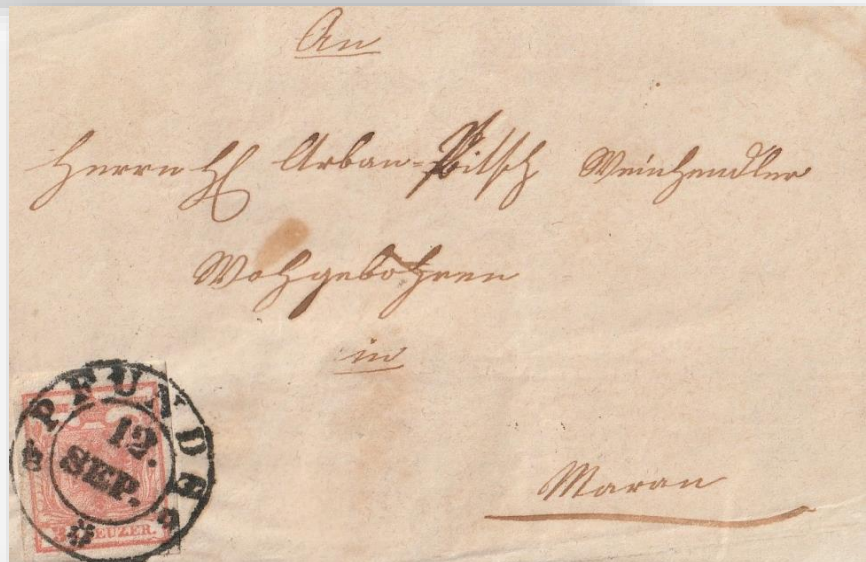 An
Herrn H Urban-Pitsch Weinhendler
Wohgebohren
in
Maran
PFUNDS
12.
SEP.
KREUZER.